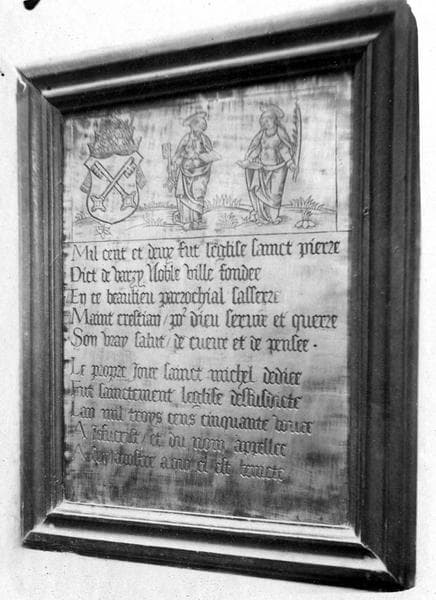 Mil cent et deux fut leglise sainct pierre
Dict de varzy Noble ville fondee
En ce beaulieu parrochial sasserre
Maint crestian / po² dieu servir et querre
Son vray salut / de cueur et de pensee ·
Le propre jour sainct michel dediee
Fut sainctement leglise dessusdicte
Lan mil troys cens cinquante
A / et du nom appellee
et est